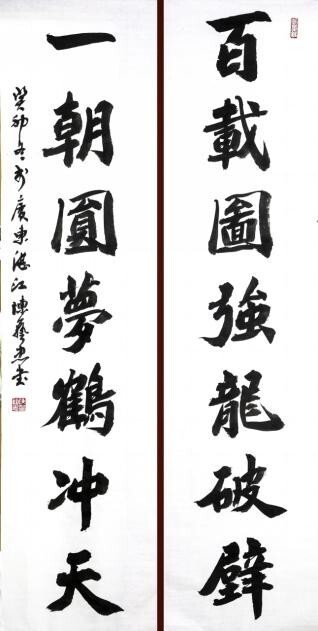 百載圖強龍破壁
一朝圓夢鶴冲天
癸卯冬於廣東湛江陳藝書